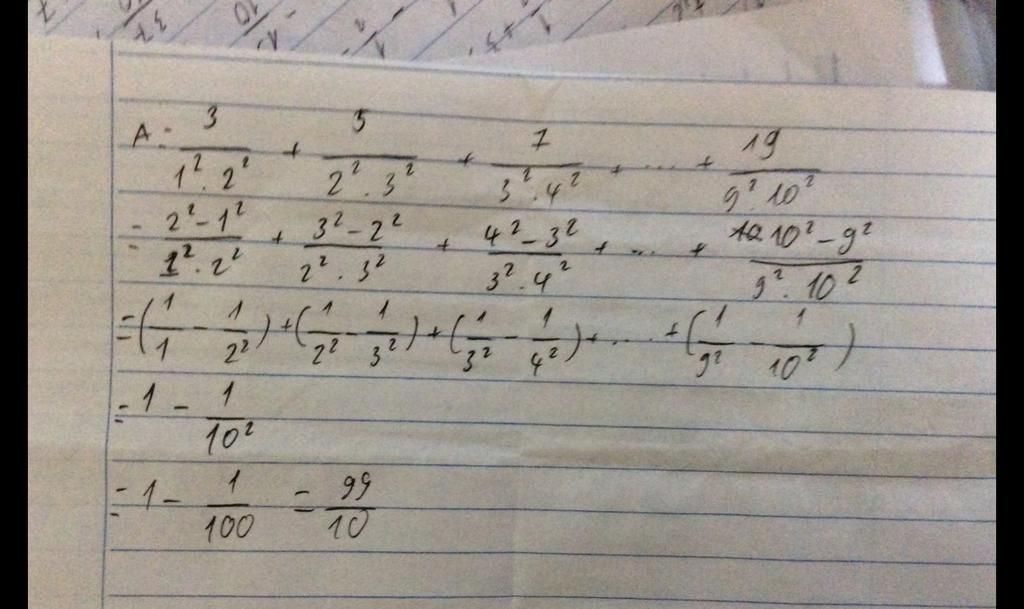 A = 3/(1² . 2²) + 5/(2² . 3²) + 7/(3² . 4²) + ... + 19/(9² . 10²)
= (2² - 1²)/(1² . 2²) + (3² - 2²)/(2² . 3²) + (4² - 3²)/(3² . 4²) + ... + (10² - 9²)/(9² . 10²)
= (1/1 - 1/2²) + (1/2² - 1/3²) + (1/3² - 1/4²) + ... + (1/9² - 1/10²)
= 1 - 1/10²
= 1 - 1/100 = 99/10